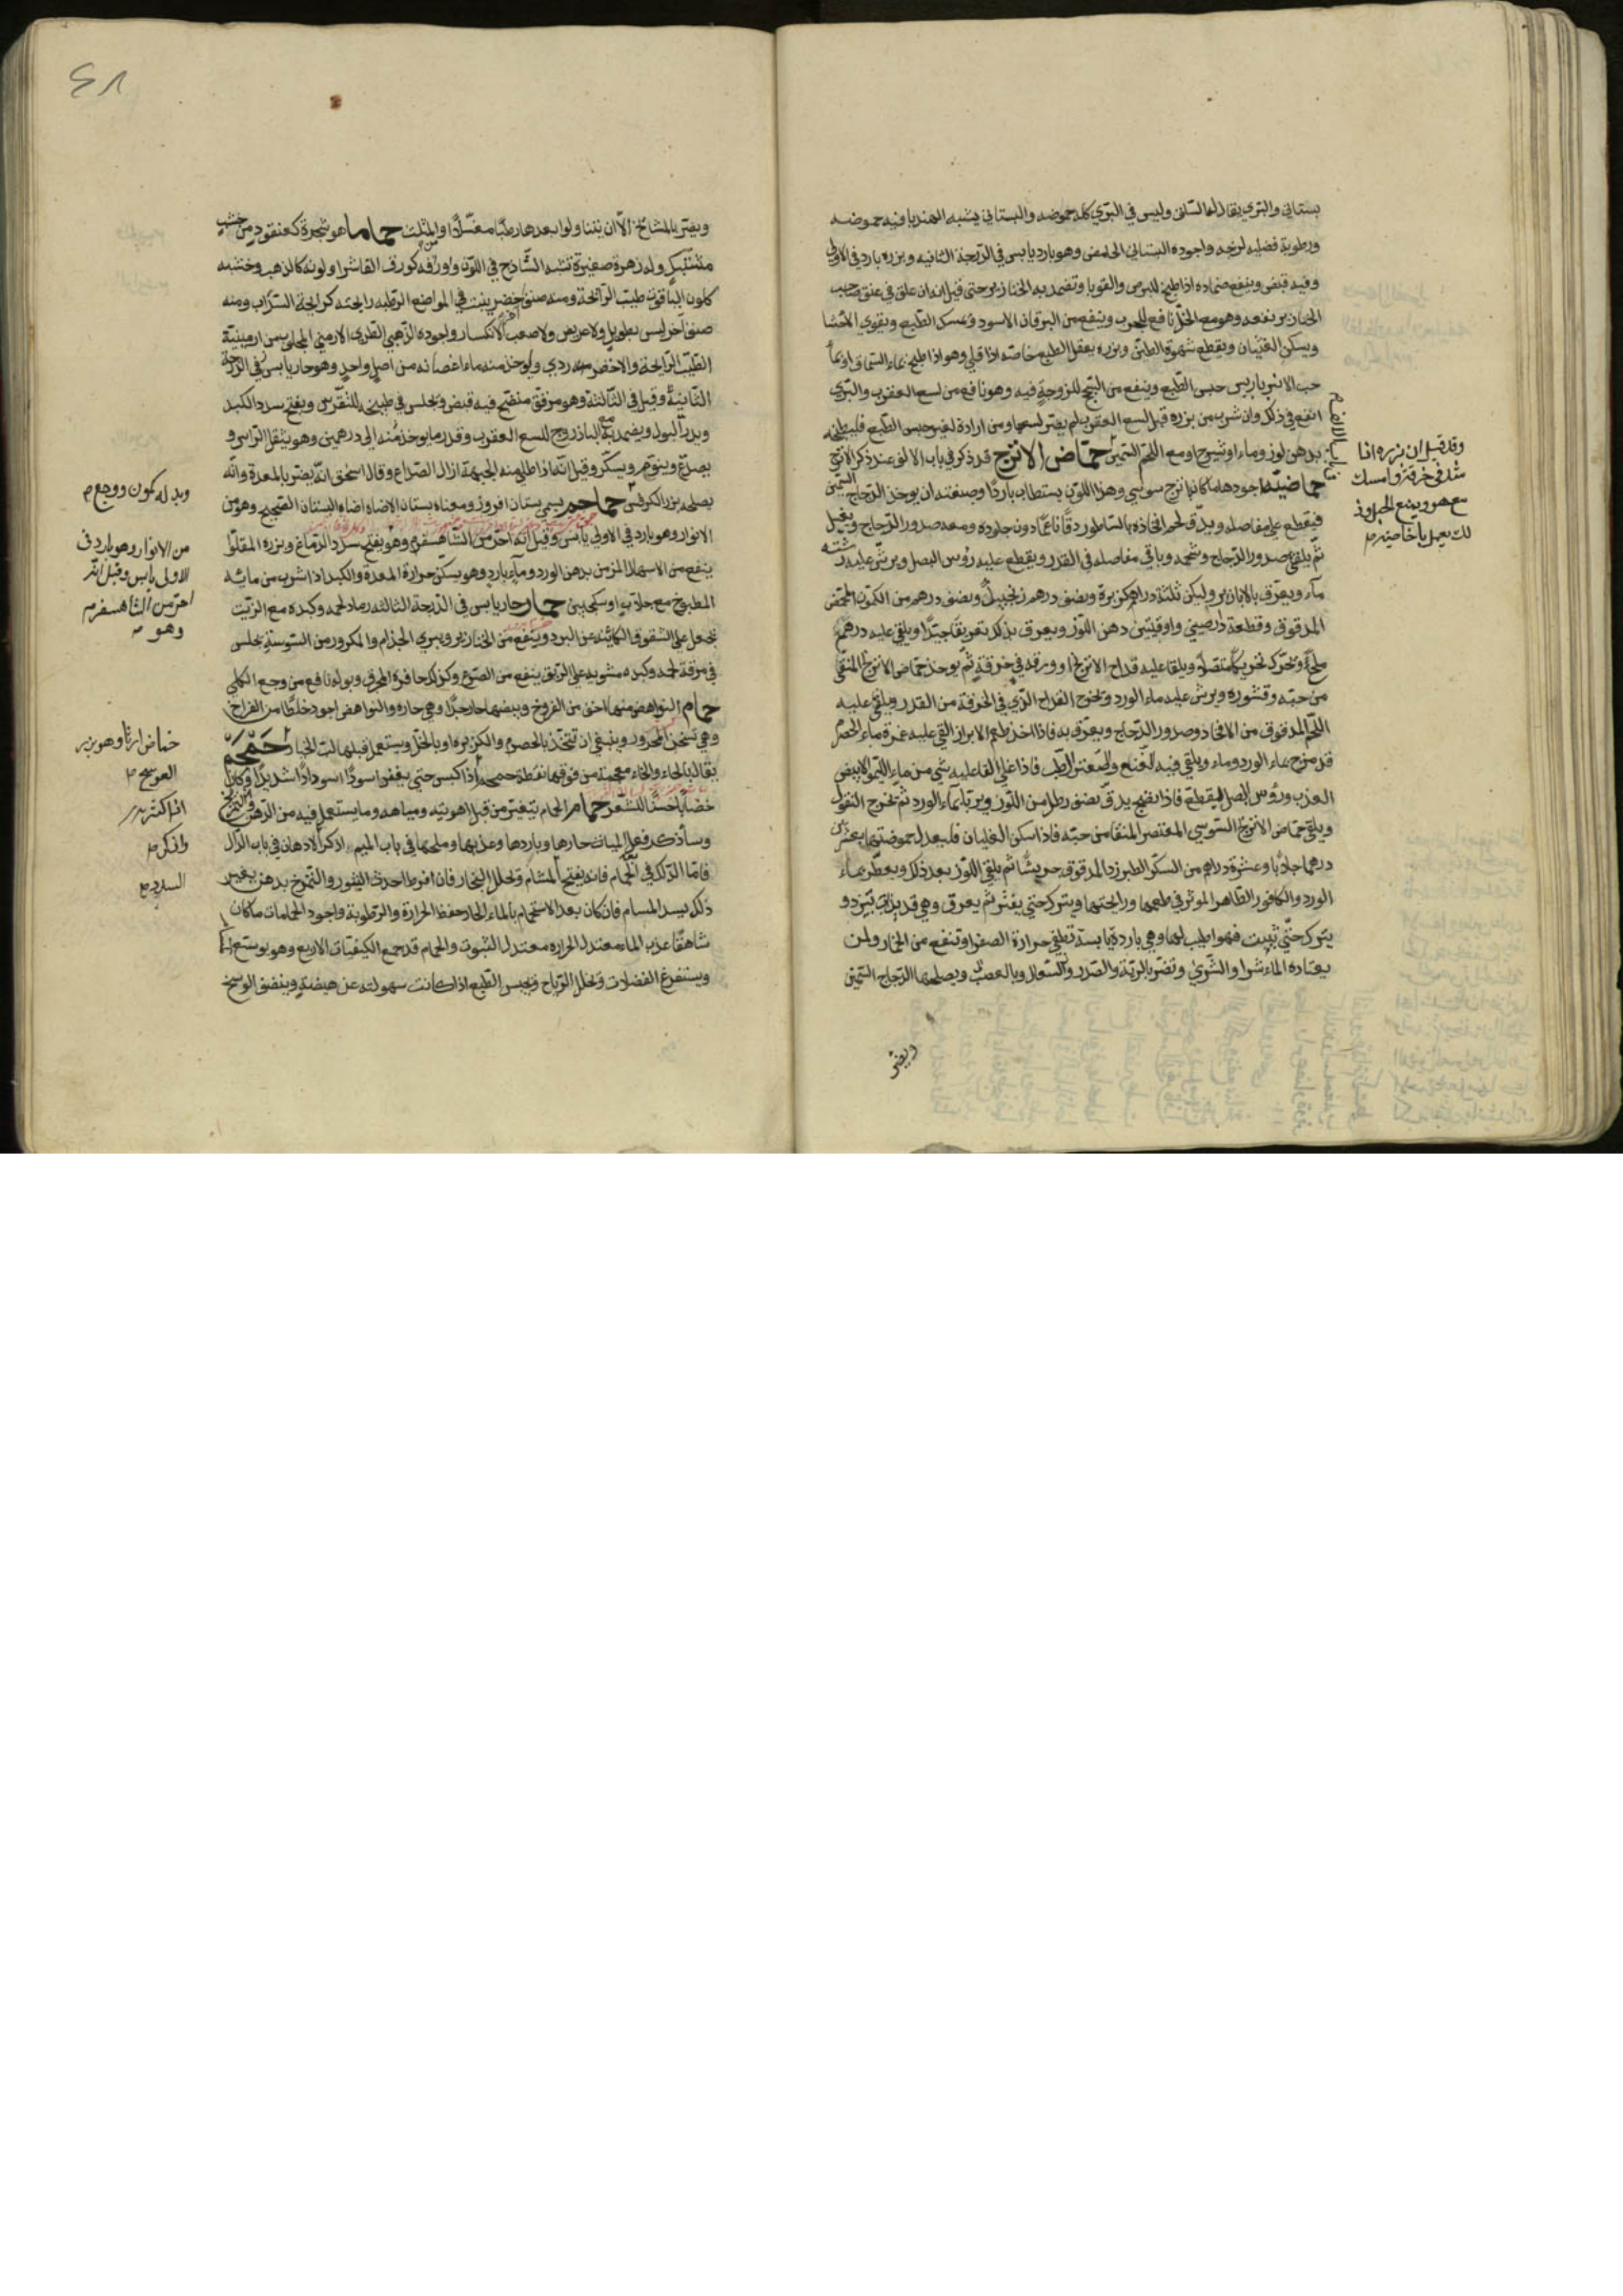 بستاني والبري يقال له السلق وليس في البري كله حموضه والبستاني يشبه الهندبا فيه حموضه
ورطوبة فضليه لزجه واجوده البستاني الحامض وهو بارد يابس في الدرجة الثانيه وبزره بارد في الاولى
وفيه قبض وينفع ضماده اذا طبخ للبرص والقوبا وتضمد به الخنازير حتى قيل انه ان علق في عنق صاحب
الخنازير نفعه وهو مع الخل نافع للجرب وينفع من اليرقان الاسود ويمسك الطبع ويقوي الاحشا
ويسكن الغثيان ويقطع شهوة الطين وبزره يعقل الطبع خاصه اذا قلي وهو اذا طبخ بماء السماق او بماء
حب الانبرباريس حبس الطبع وينفع من السحج للزوجة فيه وهو نافع من لسع العقرب والبري
انفع في ذلك وان شرب من بزره قبل لسع العقرب لم يضر لسعها ومن اراده لغير حبس الطبع فليطبخه
بدهن لوز وماء او شيرج او مع اللحم السمين حماض الاترج قد ذكر في باب الالف عند ذكر الاترج
حماضيه اجودها ما كان باترج سوسي وهذا اللون يستطاب باردا وصنعته ان يوخذ الدجاج السمين
فيقطع على مفاصله ويدق لحم افخاذه بالساطور دقا ناعما دون جلوده ومعه صدور الدجاج ويغسل
ثم يلقى صدور الدجاج وشحمه وباقي مفاصله في القدر ويقطع عليه رؤس البصل ويرش عليه
ماء ويعرق بالابازير وليكن ثلثة دراهم كزبرة ونصف درهم زنجبيل ونصف درهم من الكمون المحمص
المدقوق وقطعة دارصيني واوقيتين دهن اللوز ويعرق بذلك تعريقا جيدا ويلقى عليه درهم
ملح وتحركه تحريكا متصلا ويلقا عليه قداح الاترج او ورقه في خرقة ثم يوخذ حماض الاترج المنقى
من حبه وقشوره ويرش عليه ماء الورد وتخرج القداح الذي في الخرقة من القدر ويلقى عليه
اللحم المدقوق من الافخاذ وصدور الدجاج ويعرق به فاذا اخذ طعم الابزار القي عليه غمرة ماء الحصرم
قد مزج بماء الورد وماء ويلقى فيه النعنع والصعتر الرطب فاذا غلي القا عليه شي من ماء الليمو الابيض
العذب ورؤس البصل المقطع فاذا نضج يدق نصف رطل من اللوز ويربا بماء الورد ثم تخرج البقول
ويلقى حماض الاترج السوسي المعتصر المنقا من حبه فاذا سكن الغليان فليعدل حموضتها بعشرين
درهما جلابا وعشرة دراهم من السكر الطبرزد المدقوق جريشا ثم يلقى اللوز بعد ذلك ويعطر بماء
الورد والكافور الطاهر الموثر في طعمها ورايحتها ويترك حتى يفتر ثم يعرق وهي قد بدات تبرد و
يترك حتى تبيت فهو اطيب لها وهي باردة يابسة تطفي حرارة الصفرا وتنفع من الخمار ولمن
يعتاده الماشرا والشري وتضر بالرية والصدر والسعال وبالعصب ويصلحها الدجاج السمين
ويضر
وقد قيل ان بزره اذا
شد في خرقة وامسك
يمنع الحبل وذ
لك يعمل بالخاصية
٤٨
ويضر بالمشائخ الا ان يتناولوا بعدها رطبا معسلا او المثلث حماما هو شجرة كعنقود من خشب
مشتبك وله زهرة صغيرة تشبه الساذج في اللون واورقه كورق الفاشرا ولونه كالذهب وخشبه
كلون الياقوت طيب الرائحة ومنه صنف اخضر ينبت في المواضع الرطبه رايحته كرايحة السذاب ومنه
صنف اخر ليس بطويل ولا عريض ولا صعب الانكسار واجوده الذهبي الطري الارمني المجلوب من ارمينية
الطيب الرايحة والاخضر منه ردي ويوخذ منه ماء اغصانه من اصل واحد وهو حار يابس في الدرجة
الثانية وقيل في الثالثة وهو مرقق منضج فيه قبض ويجلس في طبيخه للنقرس ويفتح سدد الكبد
ويدر البول ويضمد به مع الباذروج للسع العقرب وقدر ما يوخذ منه الى درهمين وهو يثقل الراس و
يصدع وينوم ويسكر وقيل انه اذا طلي منه الجبهة ازال الصداع وقال اسحق انه يضر بالمعدة وانه
يصلحه بزر الكرفس حماحم يسمى بستان افروز ومعناه بستان الاضاه اضاه البستان الصحيح وهو من
الانوار وهو بارد في الاولى يابس وقيل انه احر من الشاهسفرم وهو يفتح سدد الدماغ وبزره المقلو
ينفع من الاسهال المزمن بدهن الورد وماء بارد وهو يسكن حرارة المعدة والكبد اذا شرب من مايه
المطبوخ مع جلاب او سكنجبين حمار حار يابس في الدرجة الثالثه رماد لحمه وكبده مع الزيت
يجعل على الشقوق الكائنه عن البرد وينفع من الخنازير ويبري الجذام والمكزوز من اليبوسة يجلس
في مرقة لحمه وكبده مشويه على الريق ينفع من الصرع وكذلك حافره المحرق وبوله نافع من وجع الكلي
حمام النواهض منها اخف من الفروخ وبيضها حار جدا وهي حاره والنواهض اجود خلطا من الفراخ
وهي تسخن المحرور وينبغي ان تتخذ بالحصرم والكزبره او بالخل ويستعمل قبلها لب الخيار حمحم
يقال بالحاء والخاء معجمة من فوقها نقطة حمحم اذا كبس حتى يعفن اسود اسودادا شديدا وكان
خضابا حسنا للشعر حمام الحمام يتغير من قبل اهويته ومياهه وما يستعمل فيه من الدهن والتمريخ
وسأذكر فعل المياه حارها وباردها وعذبها وملحها في باب الميم اذكر الادهان في باب الدال
فاما الدلك في الحمام فانه يفتح المسام ويحلل البخار فان افرط احدث البثور والتمرخ بدهن بعد
ذلك يسد المسام فان كان بعد الاستحمام بالماء الحار حفظ الحرارة والرطوبة واجود الحمامات ما كان
شاهقا عذب الماء معتدل الحراره معتدل البيوت والحمام قد جمع الكيفيات الاربع وهو يوسع المسام
ويستفرغ الفضلات ويحلل الرياح ويحبس الطبع اذا كانت سهولته عن هيضة وينظف الوسخ
وبدله كمون ووج
من الانوار وهو بارد في
الاولى يابس وقيل انه
احر من الشاهسفرم
وهو
حماض ارنا وهو بزر
العوسج